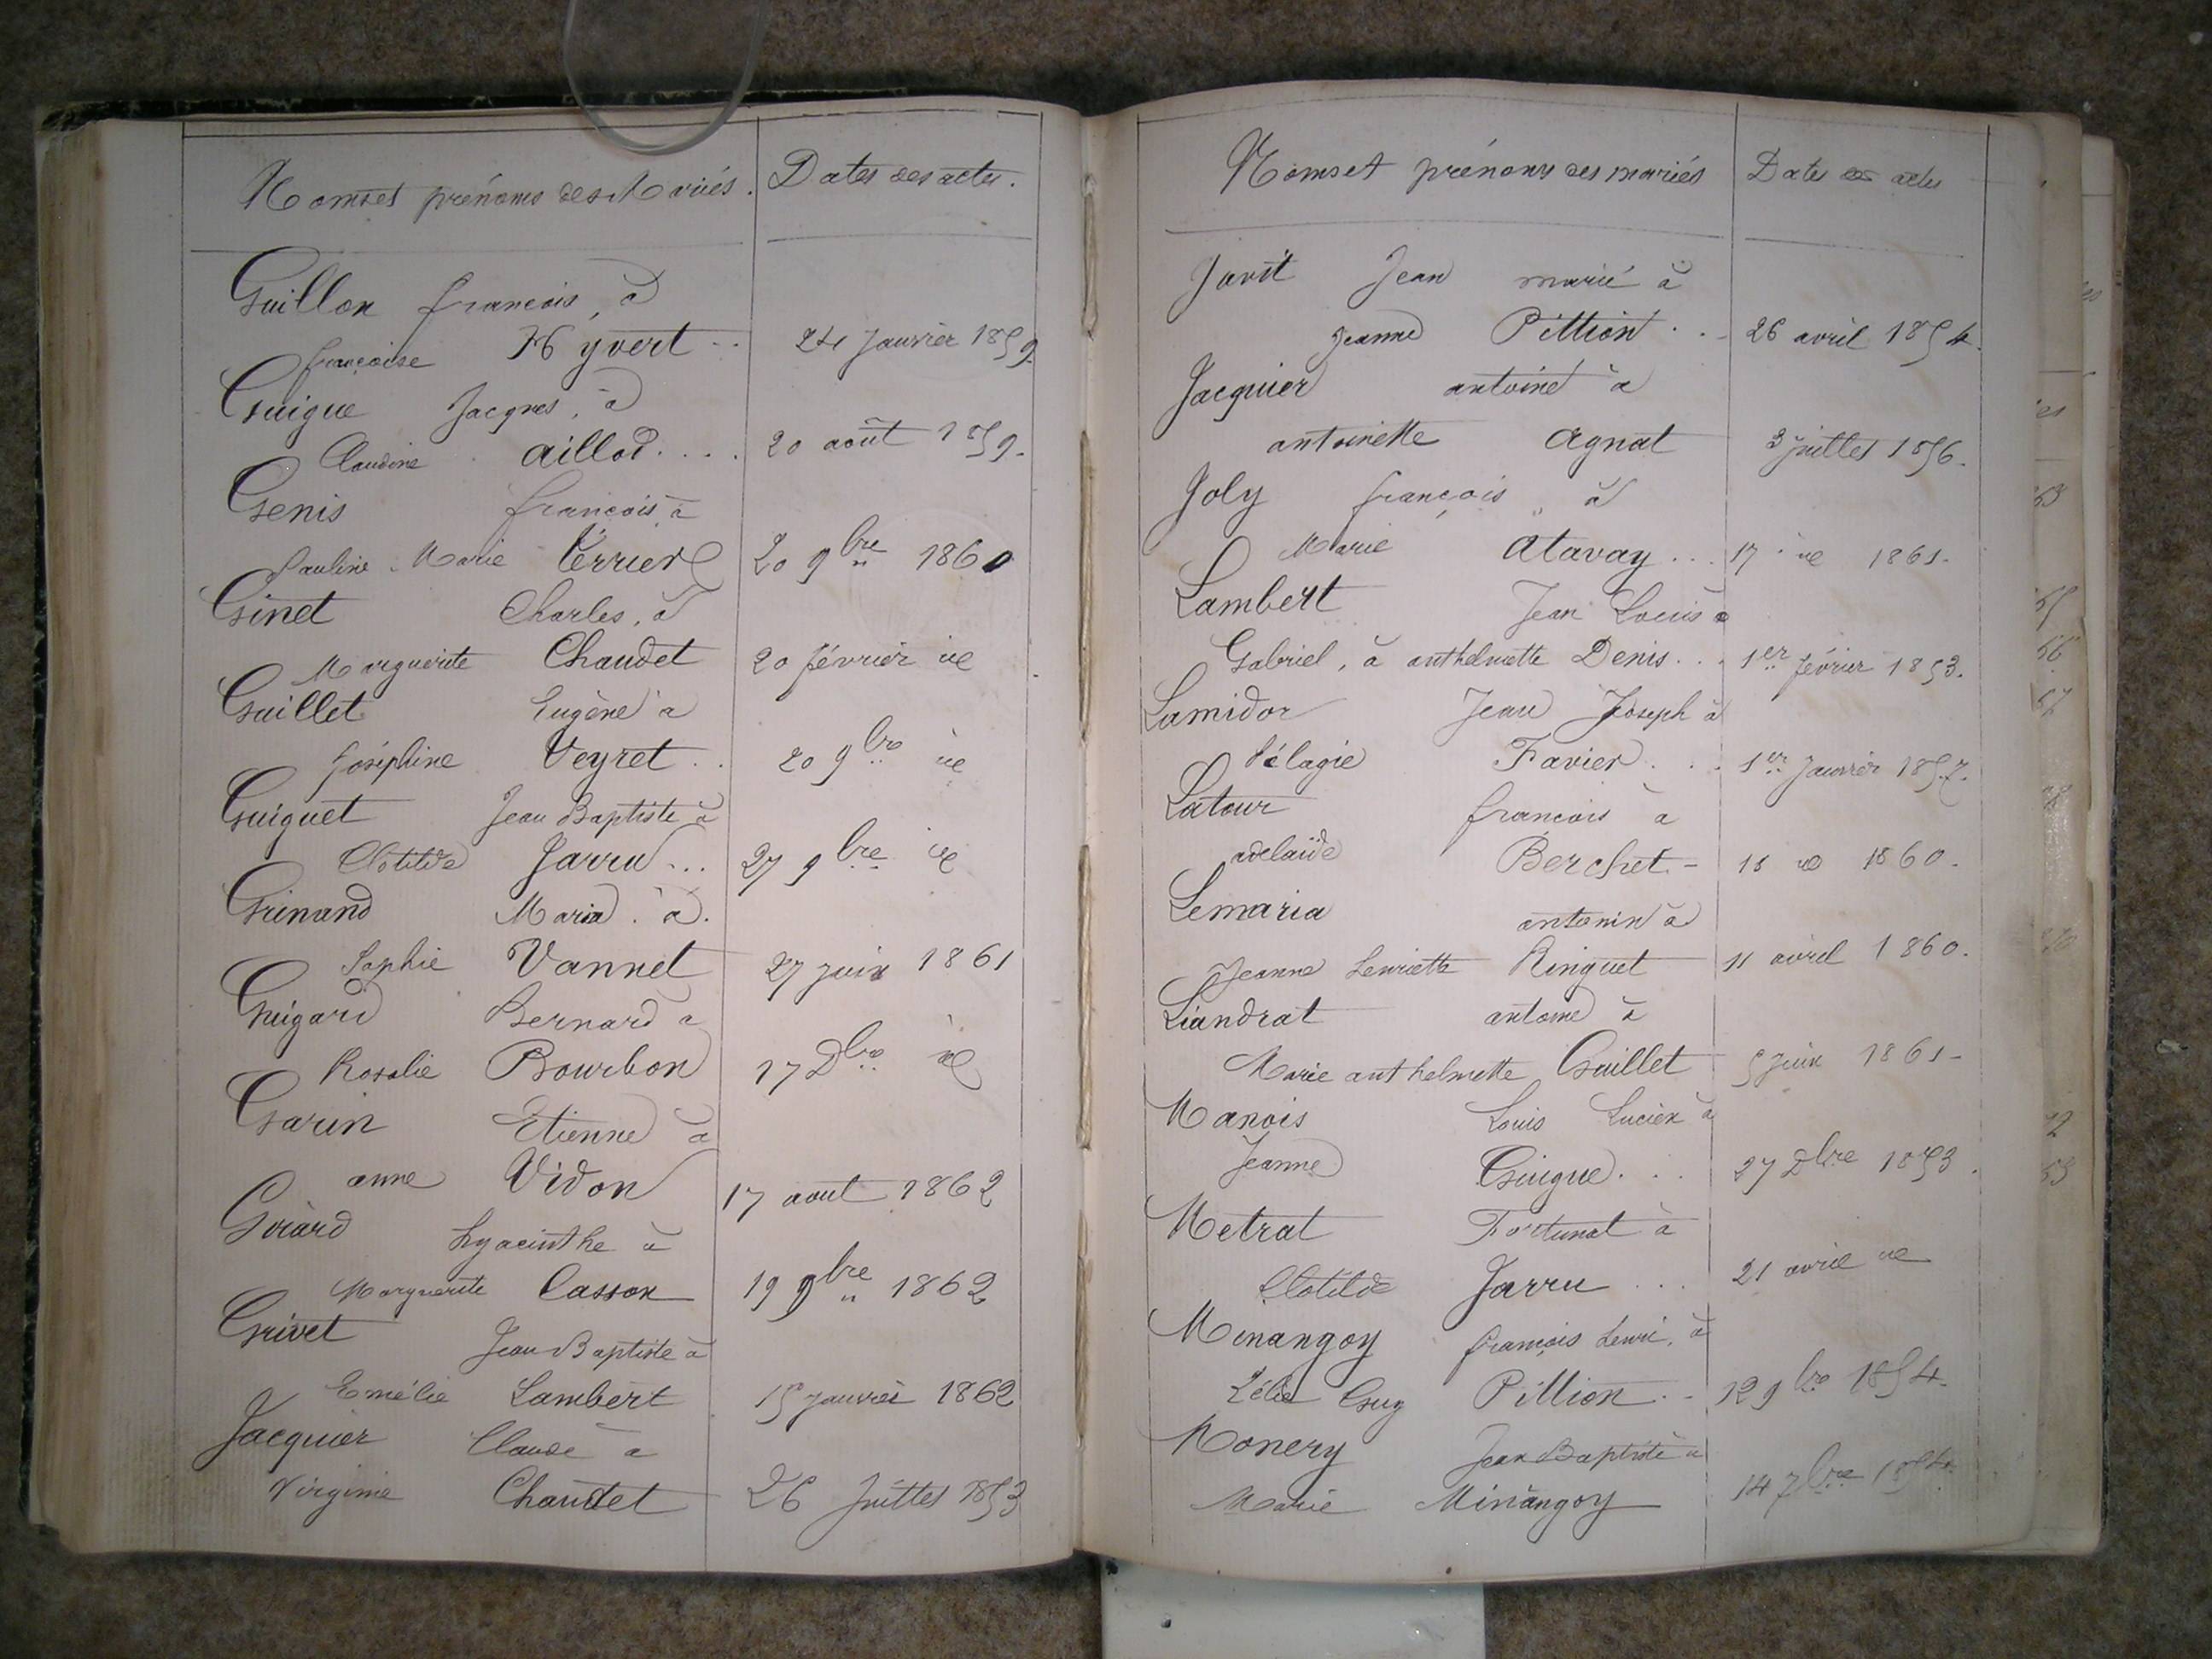 Noms et prénoms des Mariés. Dates des actes.
Guillon françois, à
françoise Hyvert -- 24 Janvier 1859.
Guigue Jacques, à
Claudine Aillod.... 20 août 1859.
Genis françois à
Pauline Marie Perrier 20 9bre 1860
Ginet Charles, à
Marguerite Chaudet 20 février
Guillet Eugène à
Joséphine Veyret .. 20 9bre
Guiguet Jean Baptiste à
Clotilde Jarru ... 27 9bre
Grinand Maria . à.
Sophie Vannet 27 juin 1861
Guigard Bernard à
Rosalie Bourbon 17 Dbre
Garin Etienne à
anne Vidon 17 aout 1862
Girard hyacinthe à
Marguerite Casson 19 9bre 1862
Grivet Jean Baptiste à
Emélie Lambert 15 janvier 1862
Jacquier Claude à
Virginie Chaudet 26 Juillet 1853
Noms et prénoms des mariés Dates des actes
Javit Jean marié à
Jeanne Pittion . . - 26 avril 1854.
Jacquier antoine à
antoinette Agnat 3 juillet 1856.
Joly françois à
Marie Atavay ... 17 1861.
Lambert Jean Louis
Gabriel, à anthelmette Denis... 1er février 1853.
Lamidor Jean Joseph à
Pélagie Favier . . . 1er Janvier 1857.
Latour francois à
adelaïde Berchet - 1860.
Lemaria antonin à
Jeanne henriette Ringuet 11 avril 1860.
Liandrat antoine à
Marie anthelmette Guillet 5 juin 1861-
Manois Louis Lucien à
Jeanne Guigue. .. 27 Dbre 1853.
Metrat Fortunat à
Clotilde Jarru ... 21 avril
Minangoy françois henri, à
Zélie Guy Pittion .- 12 9bre 1854
Monery Jean Baptiste à
Marie Minangoy 14 7bre 1854.